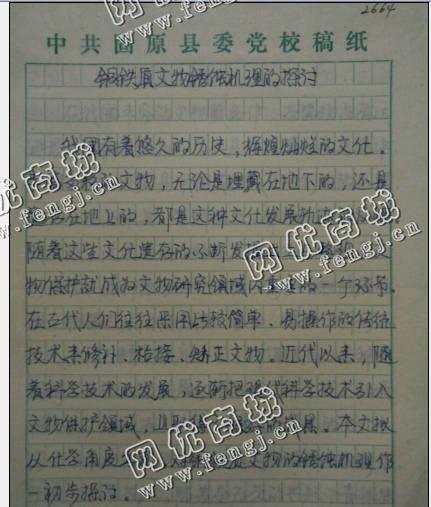 2664
中共固原县委党校稿纸
钢铁质文物锈蚀机理的探讨
我国有着悠久的历史，辉煌灿烂的文化，
文物，无论是埋藏在地下的，还是
在地上的，都是这种文化发展轨迹
随着这些文化遗存的不断发
物保护就成为文物研究领域内重要的一个环节。
在古代人们往往采用比较简单、易操作的传统
技术来修补、粘接、矫正文物。近代以来，随
着科学技术的发展，逐渐把现代科学技术引入
文物保护领域，并取得 成果。本文拟
从化学角度 文物的锈蚀机理作
一初步探讨。
网优商城
www.fengj.cn
网优商城
www.fengj.cn
网优商城
www.fengj.cn
网优商城
www.fengj.cn